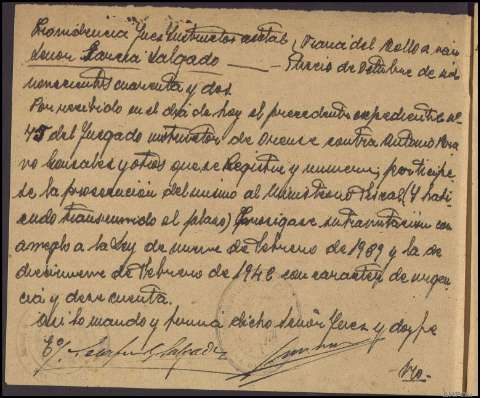 Providencia Juez Instructor acctal } Viana del Bollo a vein
Señor García Salgado — ticinco de Octubre de mil
novecientos cuarenta y dos.
Por recibido en el día de hoy el precedente expediente nº
45 del Juzgado instructor de Orense contra Antonio
no Gonzalez y otros que se registre y numere, participe
se la prosecución del mismo al Ministerio Fiscal, (y
endo transcurrido el plazo) prosigase su tramitación con
arreglo a la Ley de nueve de Febrero de 1939 y la de
diecinueve de Febrero de 1942 con caracter de urgen
cia y dese cuenta.
Asi lo mandó y firma dicho Señor Juez y doy fe
Eº/. Salgado